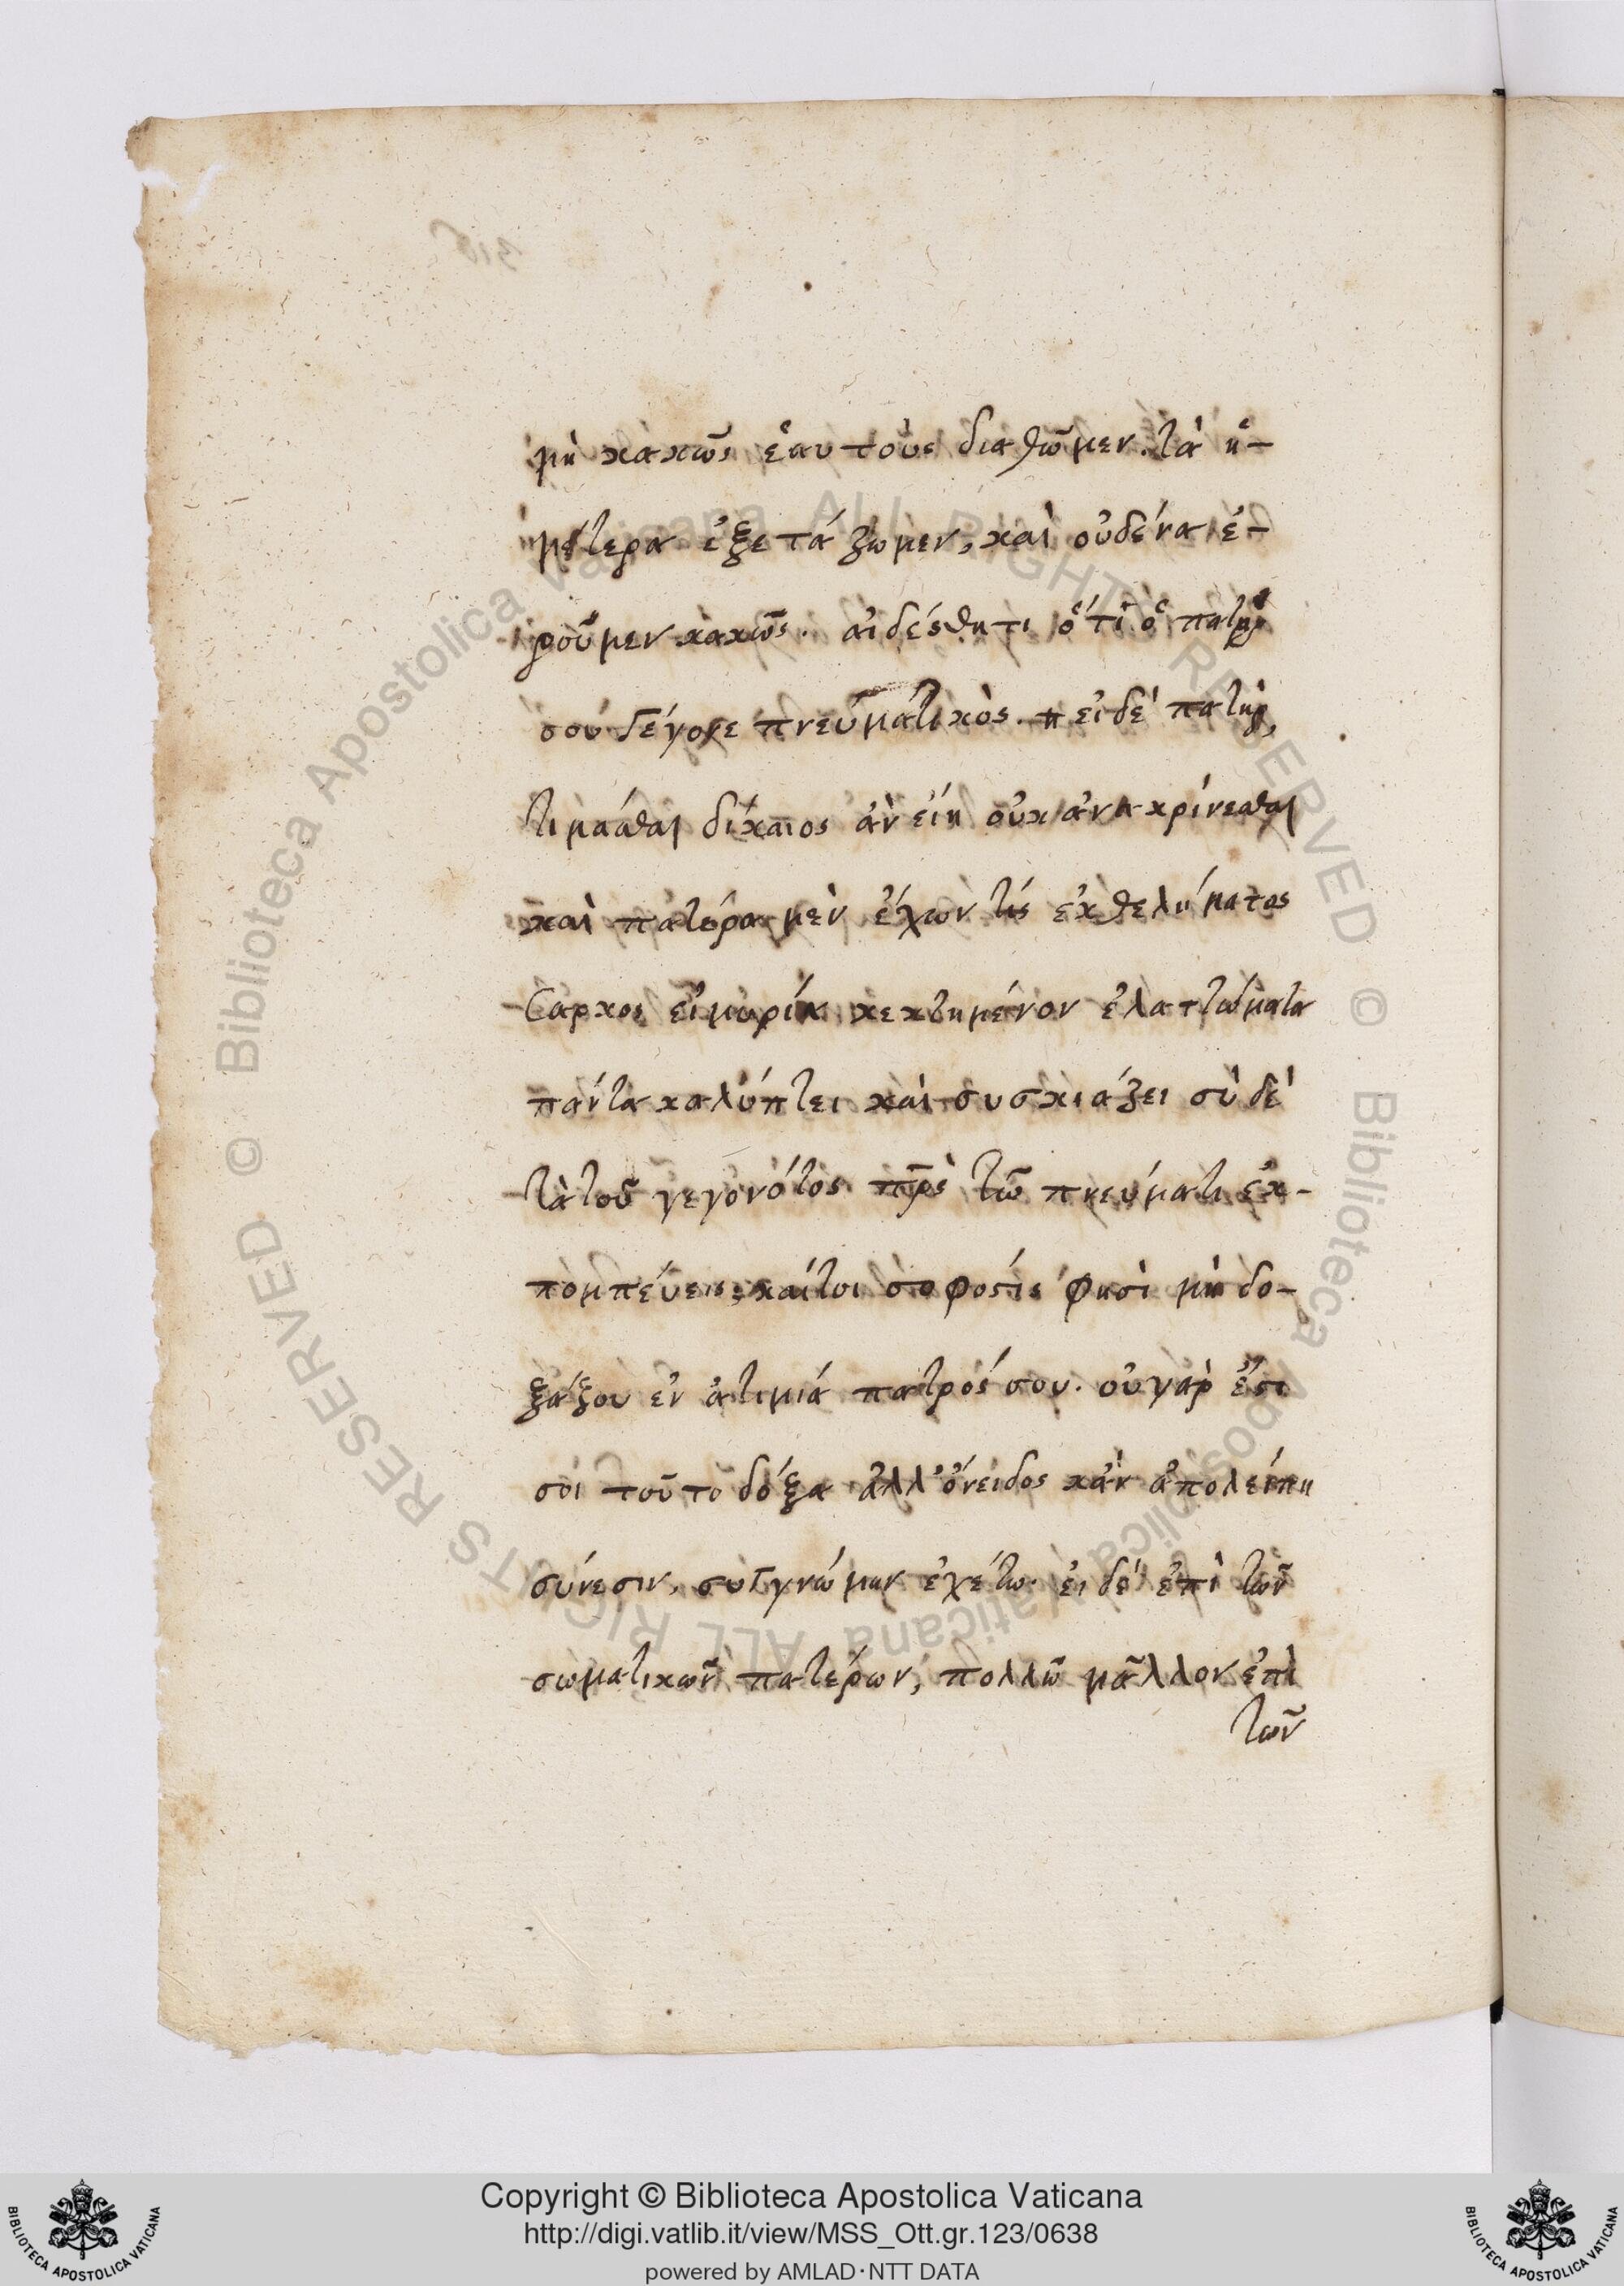 μὴ κακῶς ἑαυτοὺς διαθῶμεν. τὰ ἡ-
μέτερα ἐξετάζωμεν, καὶ οὐδένα ἐ-
ροῦμεν κακῶς. αἰδέσθητι ὅτι ὁ πατὴρ
σου γέγονε πνευματικὸς. εἰ δὲ πατὴρ,
τιμᾶσθαι δίκαιος ἀν εἴη οὐκ ἀνακρίνεσθαι
καὶ πατέρα μὲν ἔχων τίς ἐκ θελήματος
σαρκος εἰ μυρία κεκτημένον ἐλαττώματα
πάντα καλύπτει καὶ συσκιάζει σὺ δὲ
τὰ τοῦ γεγονότος πρ̅ς τῶ πνεύματι ἐκ-
πομπέυεις, καίτοι σοφοσίς φησὶ μὴ δο-
ξάζου ἐν ἀτιμιά πατρός σου. οὐ γὰρ ἔστι
σοι τοῦτο δόξα ἀλλ' ὄνειδος κἀν ἀπολείπη
σύνεσιν, συγγνώμην ἐχέτω. ἐι δὲ ἐπὶ τῶν
σωματικῶν πατέρων, πολλῶ μᾶλλον ἐπὶ
τῶν
Copyright © Biblioteca Apostolica Vaticana
http://digi.vatlib.it/view/MSS_Ott.gr.123/0638
powered by AMLAD·NTT DATA
BIBLIOTECA APOSTOLICA VATICANA
BIBLIOTECA APOSTOLICA VATICANA
© Biblioteca Apostolica Vaticana ALL RIGHTS RESERVED
© Biblioteca Apostolica Vaticana ALL RIGHTS RESERVED